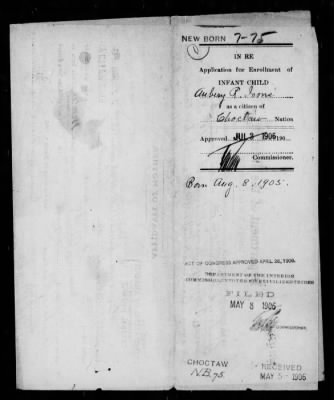 NEW BORN 7-75
IN RE
Application for Enrollment of
INFANT CHILD
Aubery R. Irons
as a citizen of
Choctaw Nation
Approved JUL 3 1906 190
Commissioner.
Born Aug. 8, 1905.
ACT OF CONGRESS APPROVED APRIL 26, 1906.
DEPARTMENT OF THE INTERIOR
COMMISSIONER TO THE FIVE CIVILIZED TRIBES
FILED
MAY 3 1906
COMMISSIONER
CHOCTAW
N.B. 75.
RECEIVED
MAY 3 1906